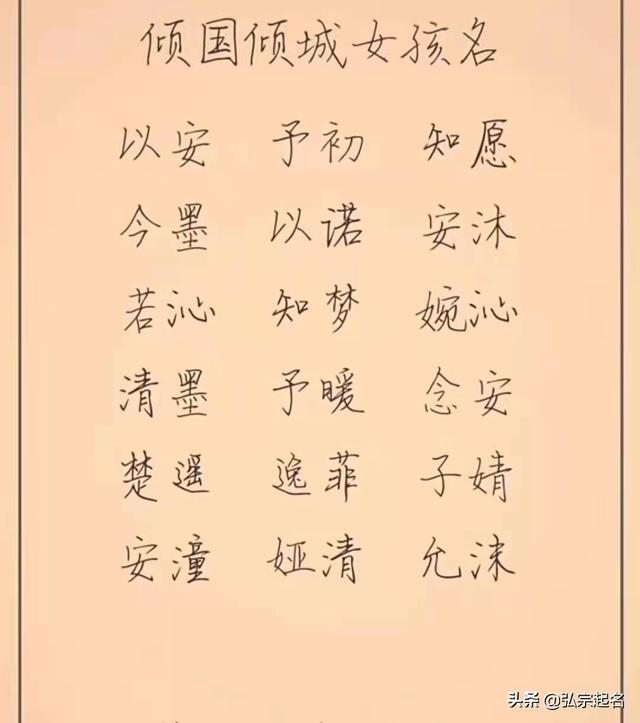 倾国倾城女孩名
以安 予初 知愿
今墨 以诺 安沐
若沁 知梦 婉沁
清墨 予暖 念安
楚遥 逸菲 子婧
安潼 娅清 允沫
头条 @弘宗起名